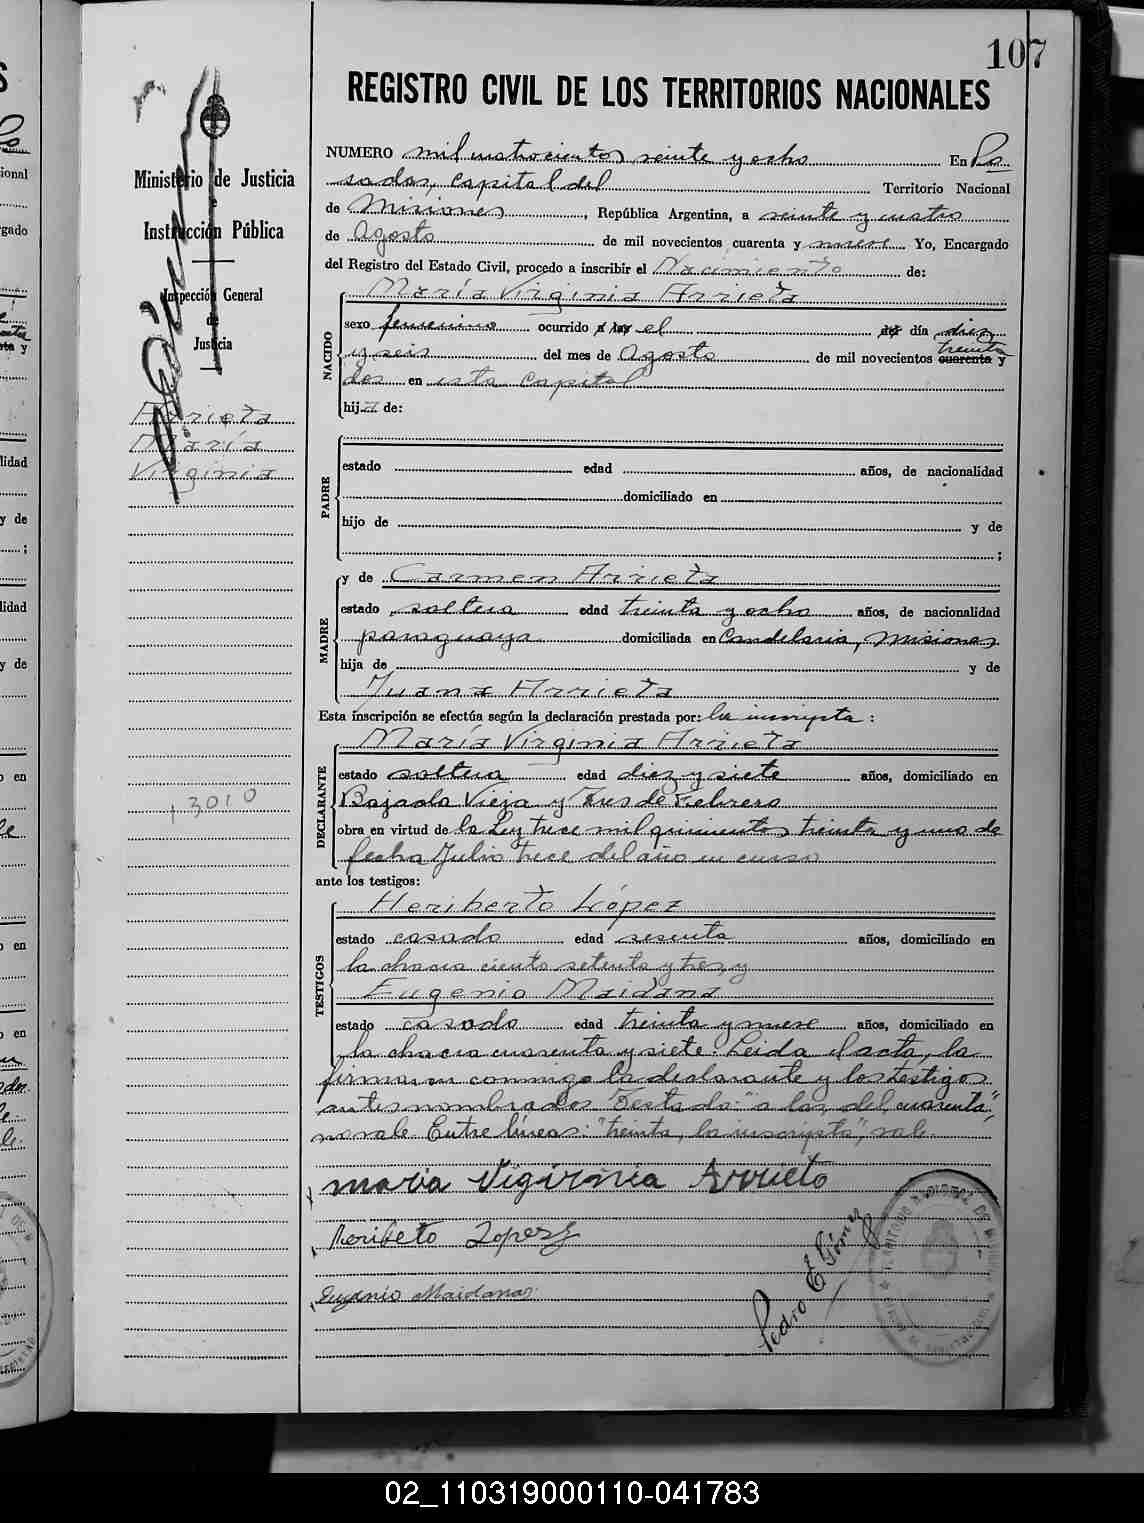 107
REGISTRO CIVIL DE LOS TERRITORIOS NACIONALES
Ministerio de Justicia
e
Instrucción Pública
Inspección General
de
Justicia
Arrieta
María
Virginia
13010
NUMERO mil cuatrocientos veinte y ocho En Po
sadas, capital del Territorio Nacional
de Misiones, República Argentina, a veinte y cuatro
de Agosto de mil novecientos cuarenta y nueve Yo, Encargado
del Registro del Estado Civil, procedo a inscribir el Nacimiento de:
María Virginia Arrieta
NACIDO
sexo femenino ocurrido a las el del día diez
y seis del mes de Agosto de mil novecientos cuarenta treinta y
dos en esta capital
hija de:
PADRE
estado edad años, de nacionalidad
domiciliado en
hijo de y de
;
MADRE
y de Carmen Arrieta
estado soltera edad treinta y ocho años, de nacionalidad
paraguaya domiciliada en Candelaria, Misiones
hija de y de
Juana Arrieta
Esta inscripción se efectúa según la declaración prestada por: la inscripta:
DECLARANTE
María Virginia Arrieta
estado soltera edad diez y siete años, domiciliado en
Bajada Vieja y Tres de Febrero
obra en virtud de la Ley trece mil quinientos treinta y uno de
fecha Julio trece del año en curso
ante los testigos:
TESTIGOS
Heriberto López
estado casado edad sesenta años, domiciliado en
la chacra ciento setenta y tres y
Eugenio Maidana
estado casado edad treinta y nueve años, domiciliado en
la chacra cuarenta y siete. Leida el acta, la
firmaron conmigo la declarante y los testigos
antes nombrados "Testado: "a las, del, cuarenta",
no vale Entre líneas: "treinta, la inscripta", vale.
maria Vigirnia Arrieto
Heribeto Lopez
Eugenio Maidana
Pedro E Gómez
02_110319000110-041783